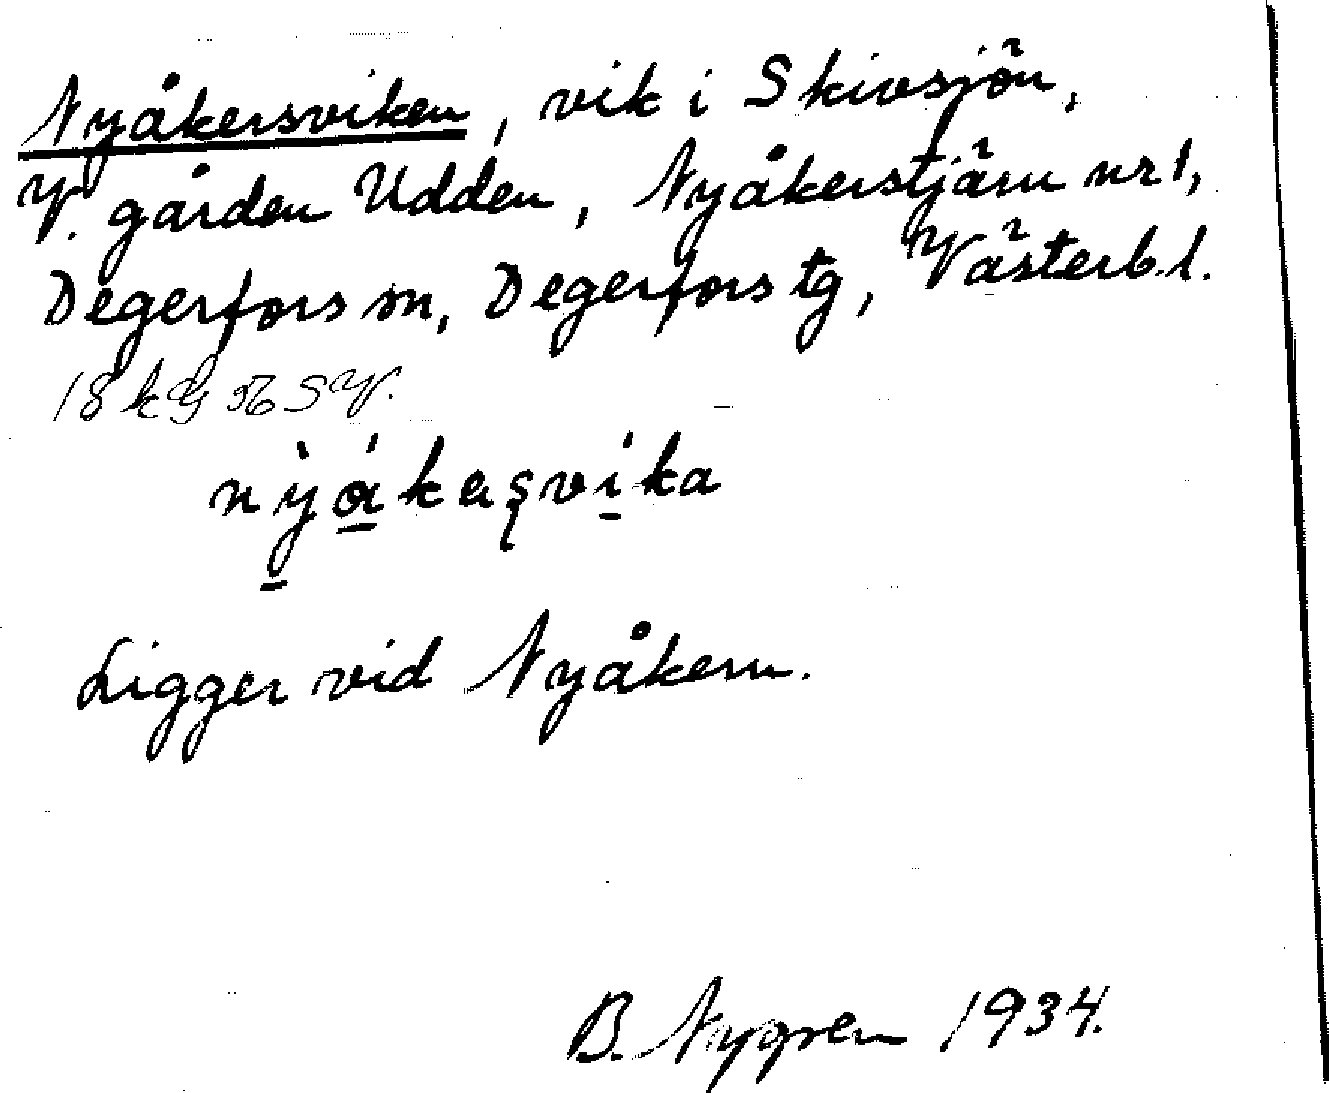 Nyåkersviken, vik i Skivsjön,
V. gården Udden, Nyåkerstjärn nr 1,
Degerfors sn, Degerfors tg, Västerb. l.
18 k 56 SV.
nỳákaşvìka
Ligger vid Nyåkern.
B. Nygren 1934.